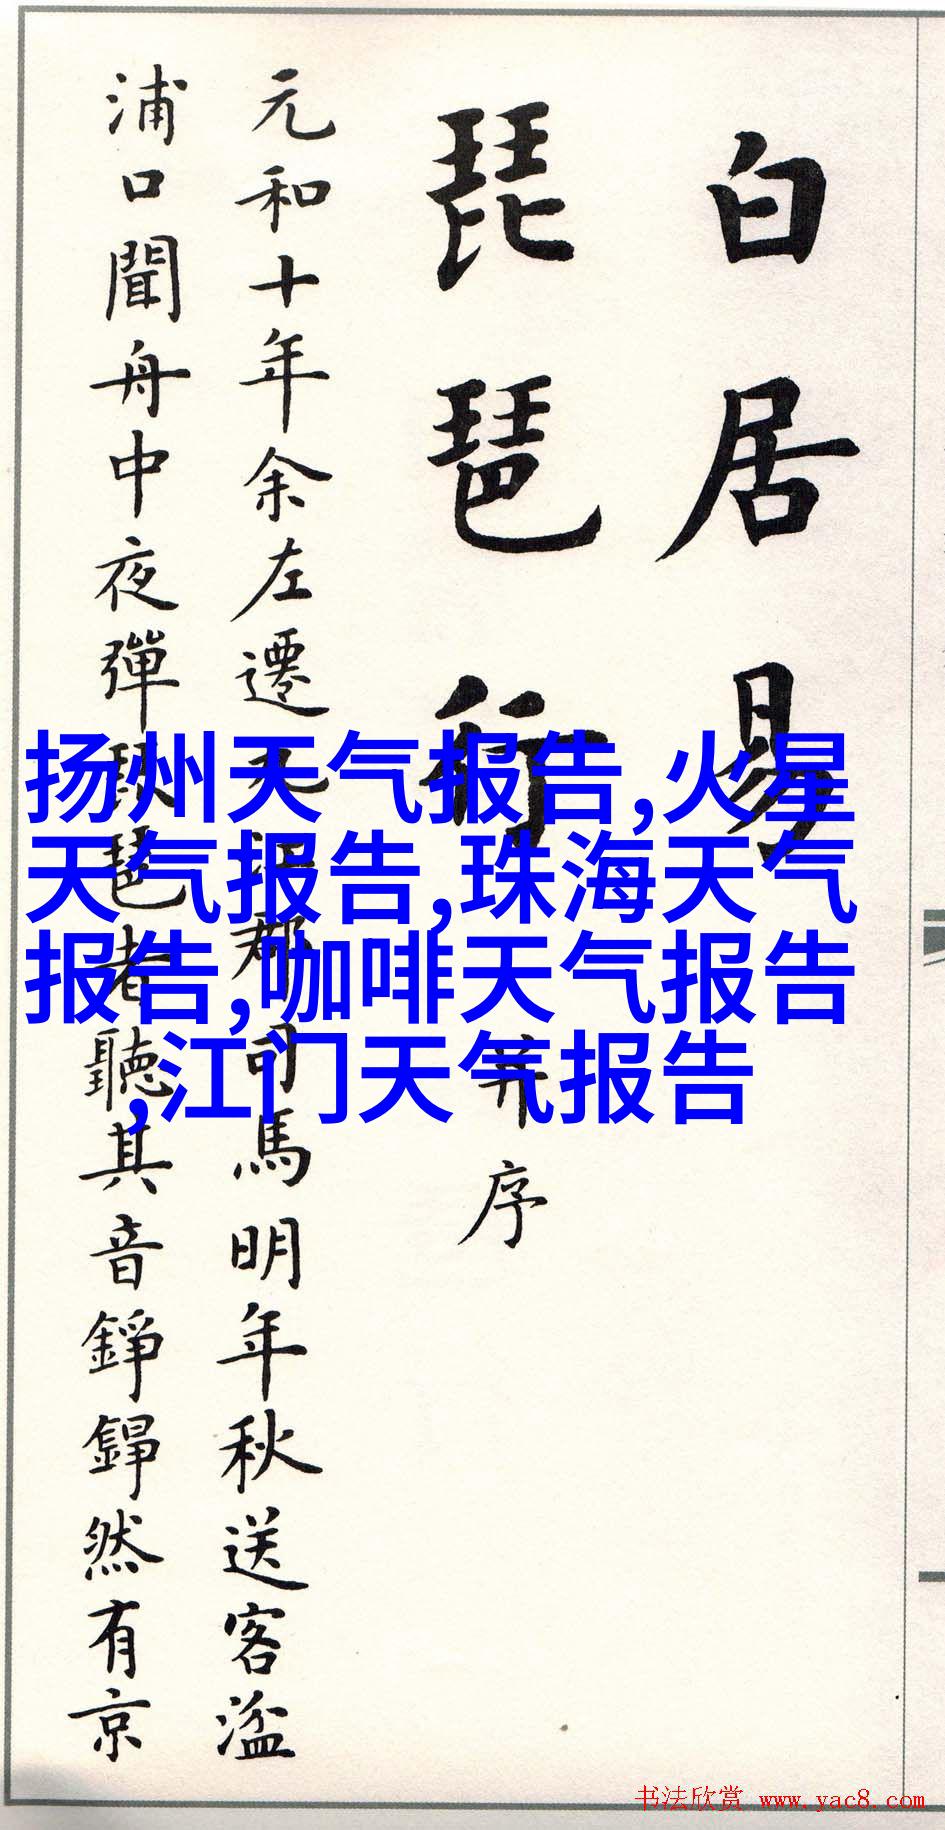 白居易
琵琶行
并序
元和十年余左遷九江郡司馬明年秋送客湓
浦口聞舟中夜彈琵琶者聽其音錚錚然有京
扬州天气报告,火星
天气报告,珠海天气
报告,咖啡天气报告
,江门天气报告
书法欣赏 www.yac8.com